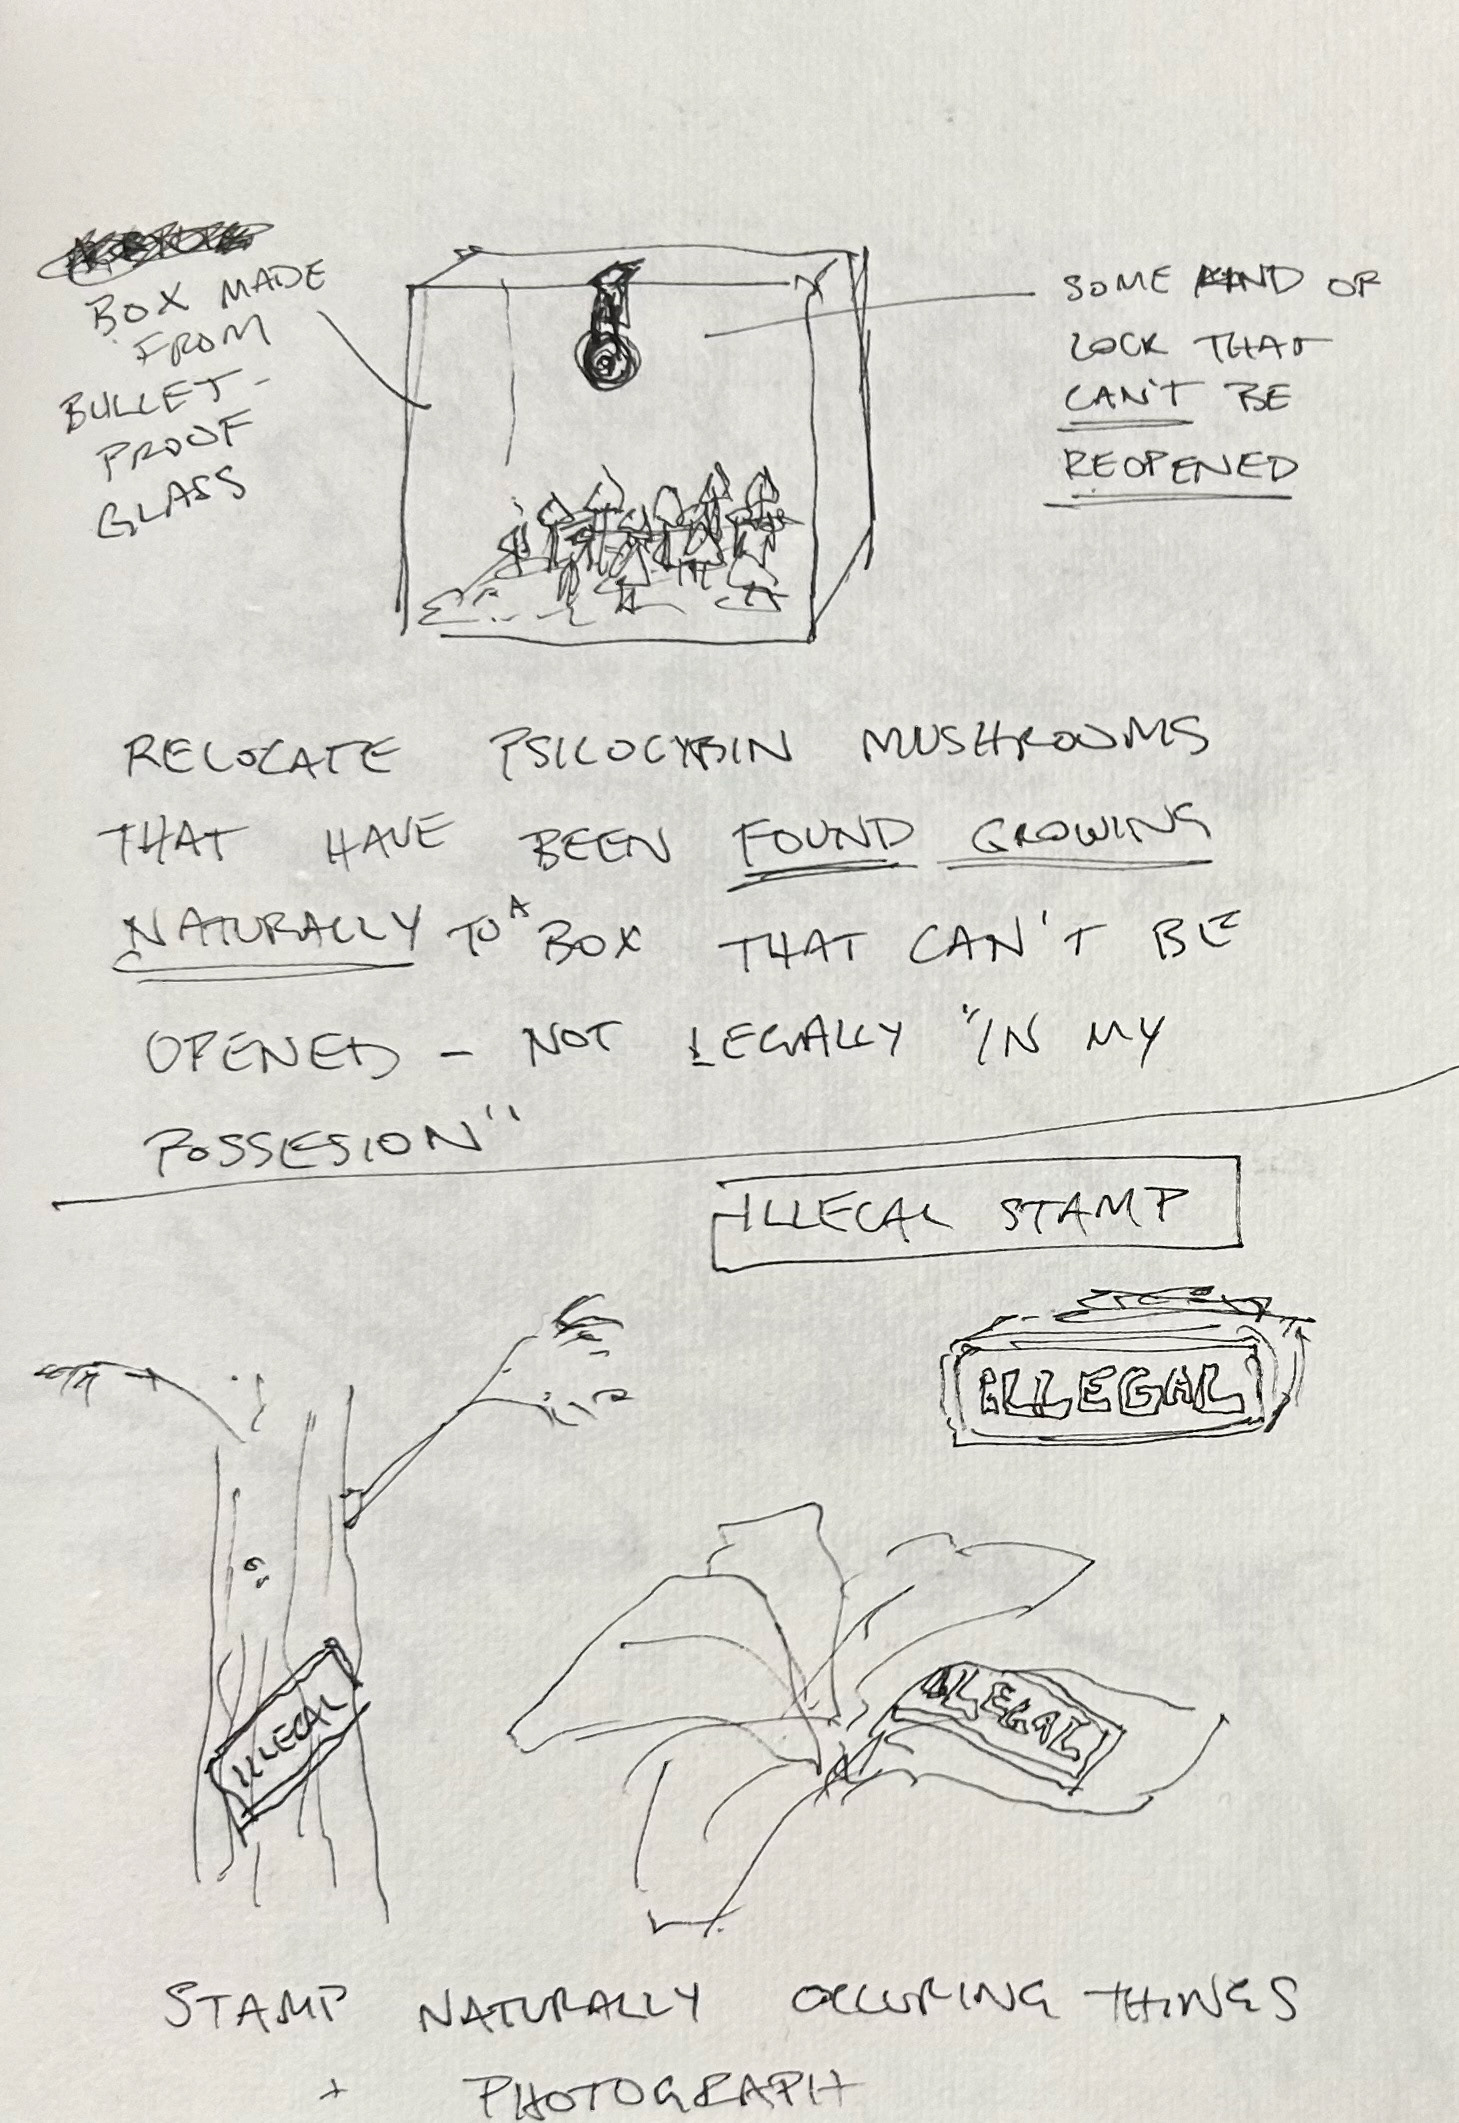 BOX MADE
FROM
BULLET-
PROOF
GLASS
SOME KIND OF
LOCK THAT
CAN'T BE
REOPENED
RELOCATE PSILOCYBIN MUSHROOMS
THAT HAVE BEEN FOUND GROWING
NATURALLY TO A BOX THAT CAN'T BE
OPENED – NOT LEGALLY "IN MY
POSSESION"
ILLEGAL STAMP
ILLEGAL
ILLEGAL
ILLEGAL
STAMP NATURALLY OCCURING THINGS
+ PHOTOGRAPH